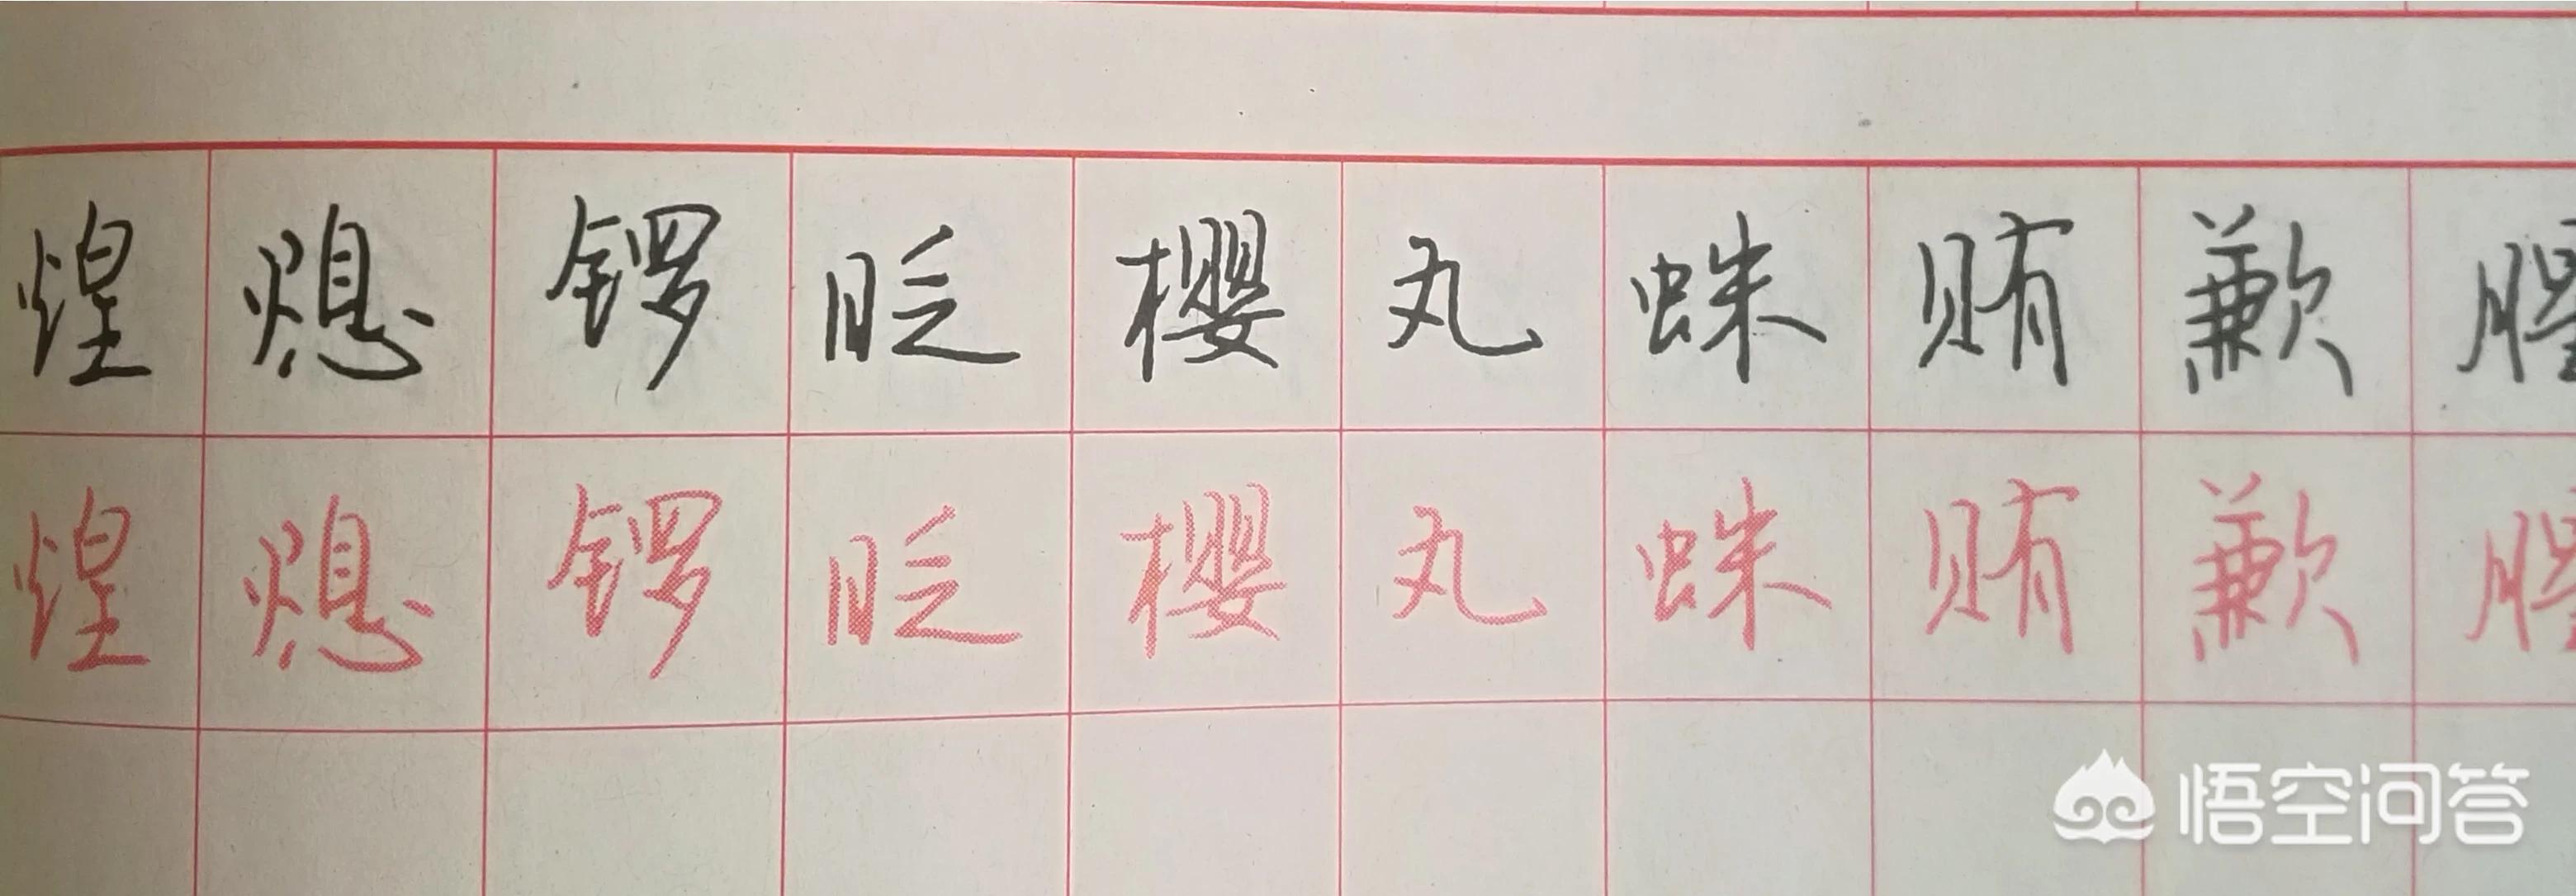 煌熄锣眨樱丸蛛贿歉
煌熄锣眨樱丸蛛贿歉
悟空问答